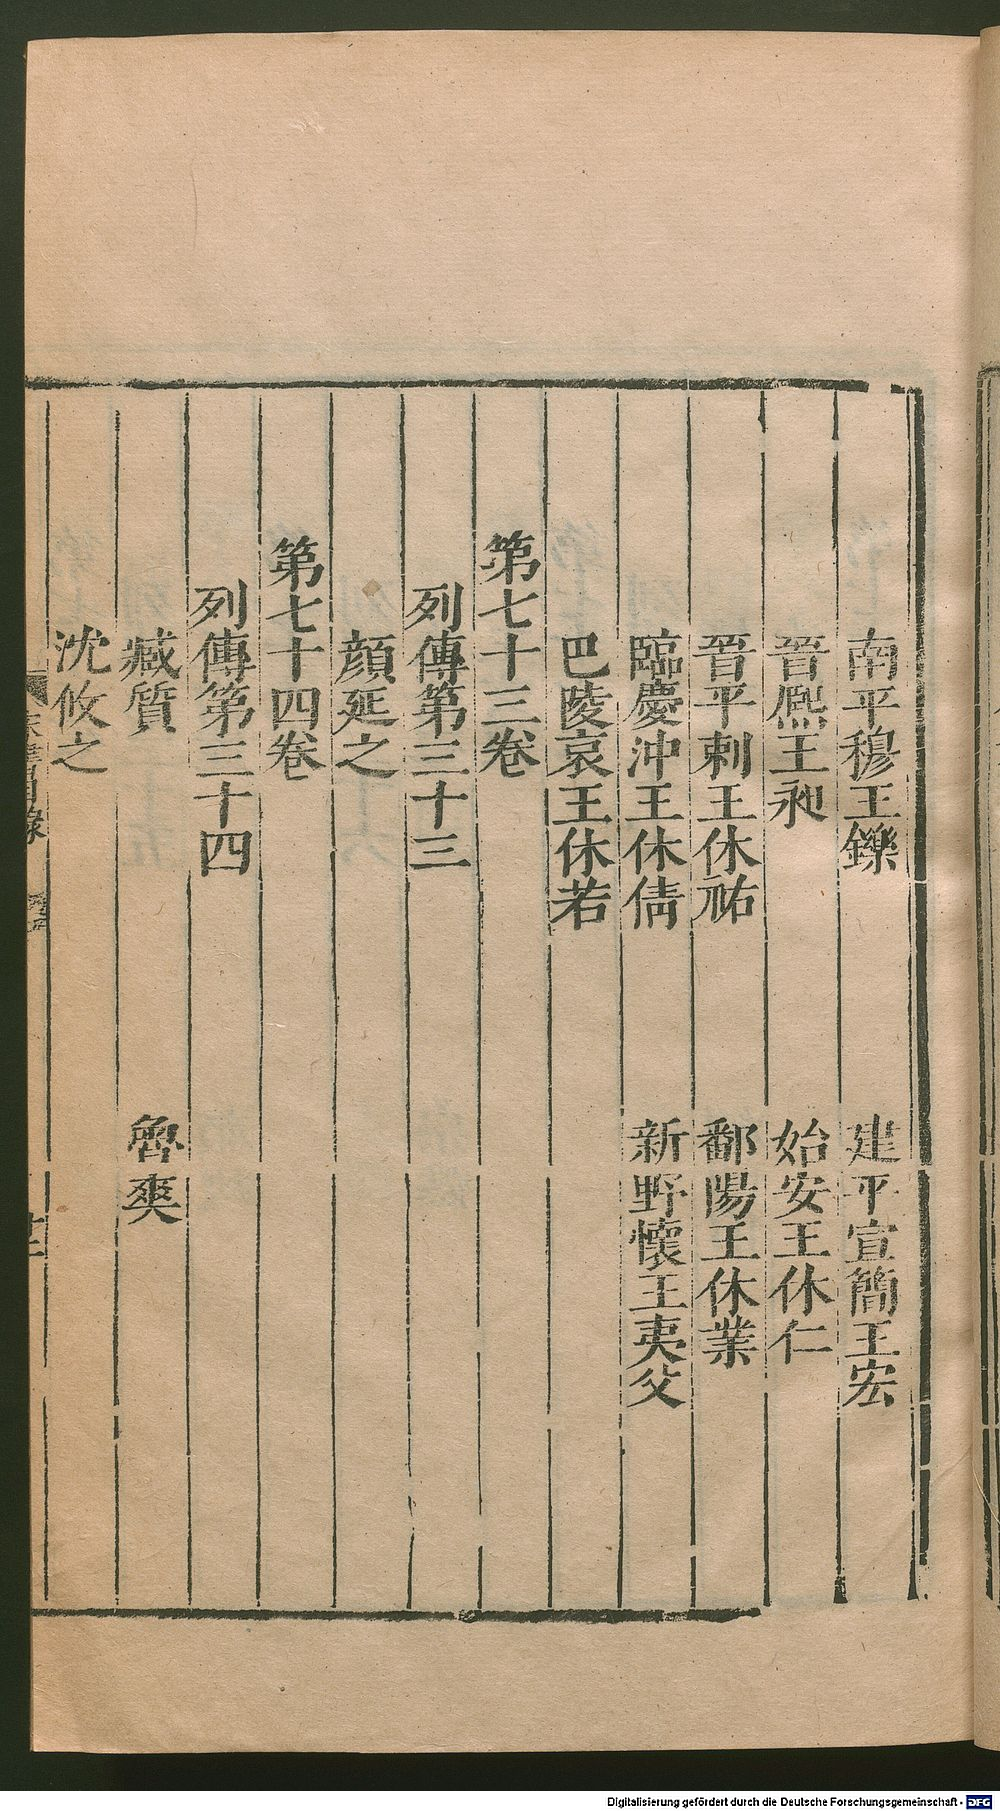 南平穆王鑠　建平宣簡王宏
晉熈王昶　始安王休仁
晉平剌王休祐　鄱陽王休業
臨慶沖王休倩　新野懷王夷父
巴陵哀王休若
第七十三卷
列傳第三十三
顔延之
第七十四卷
列傳第三十四
臧質　魯爽
沈攸之
Digitalisierung gefördert durch die Deutsche Forschungsgemeinschaft - DFG